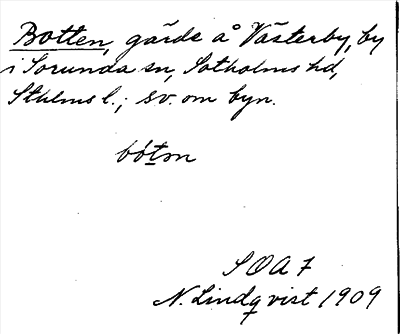 Botten, gärde å Västerby, by
i Sorunda sn, Sotholms hd,
Sthlms l.; sv. om byn.
bótm
S O A 7
N. Lindqvist 1909